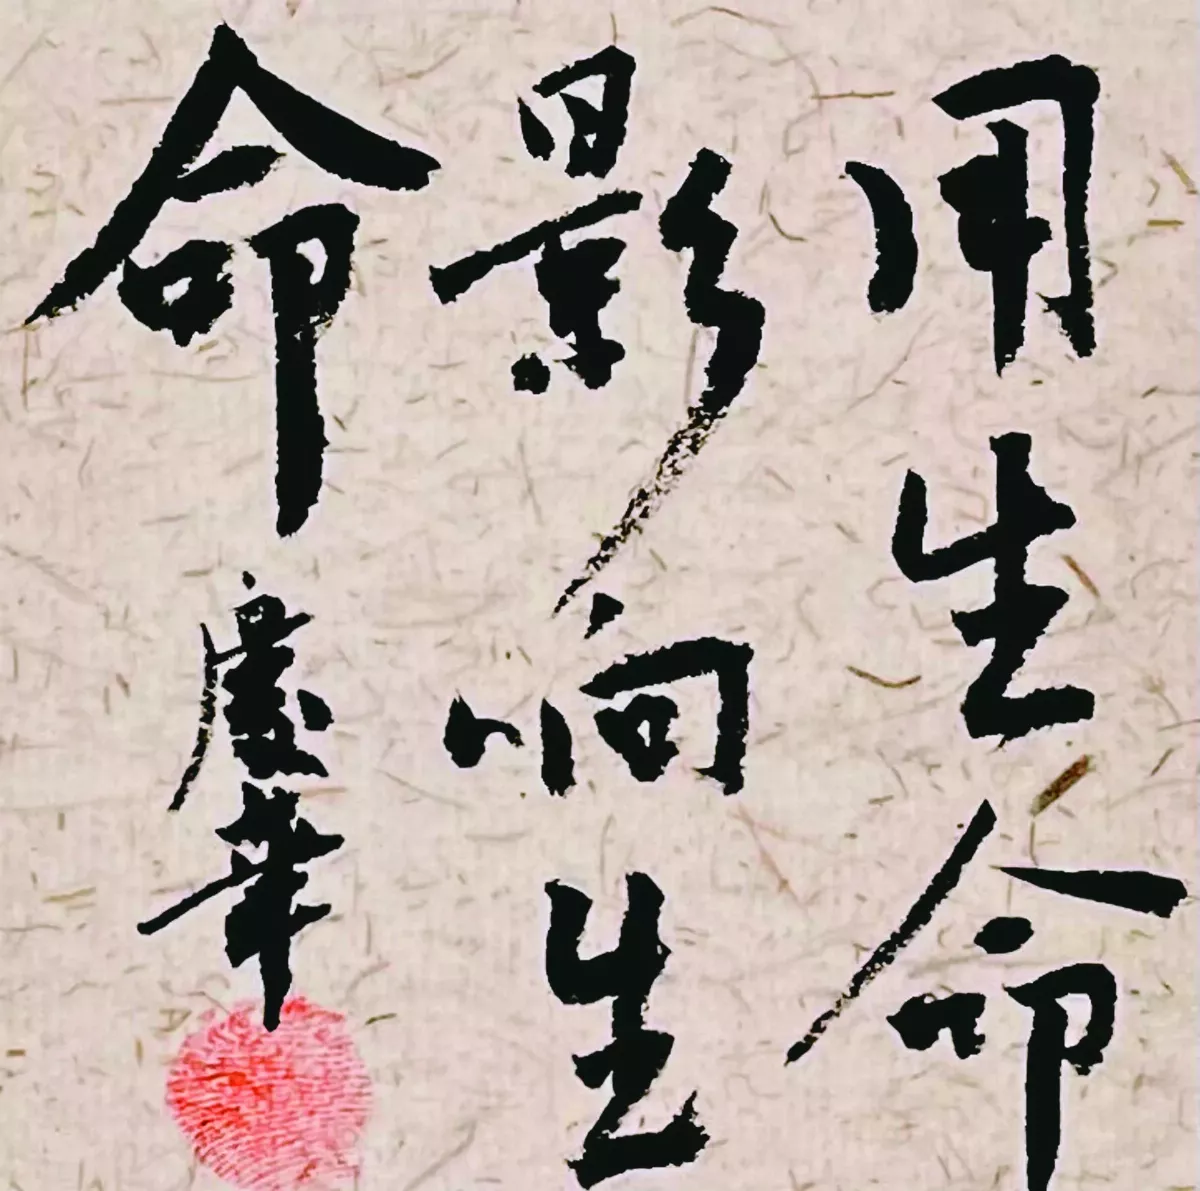 用生命
影响生
命
慶华